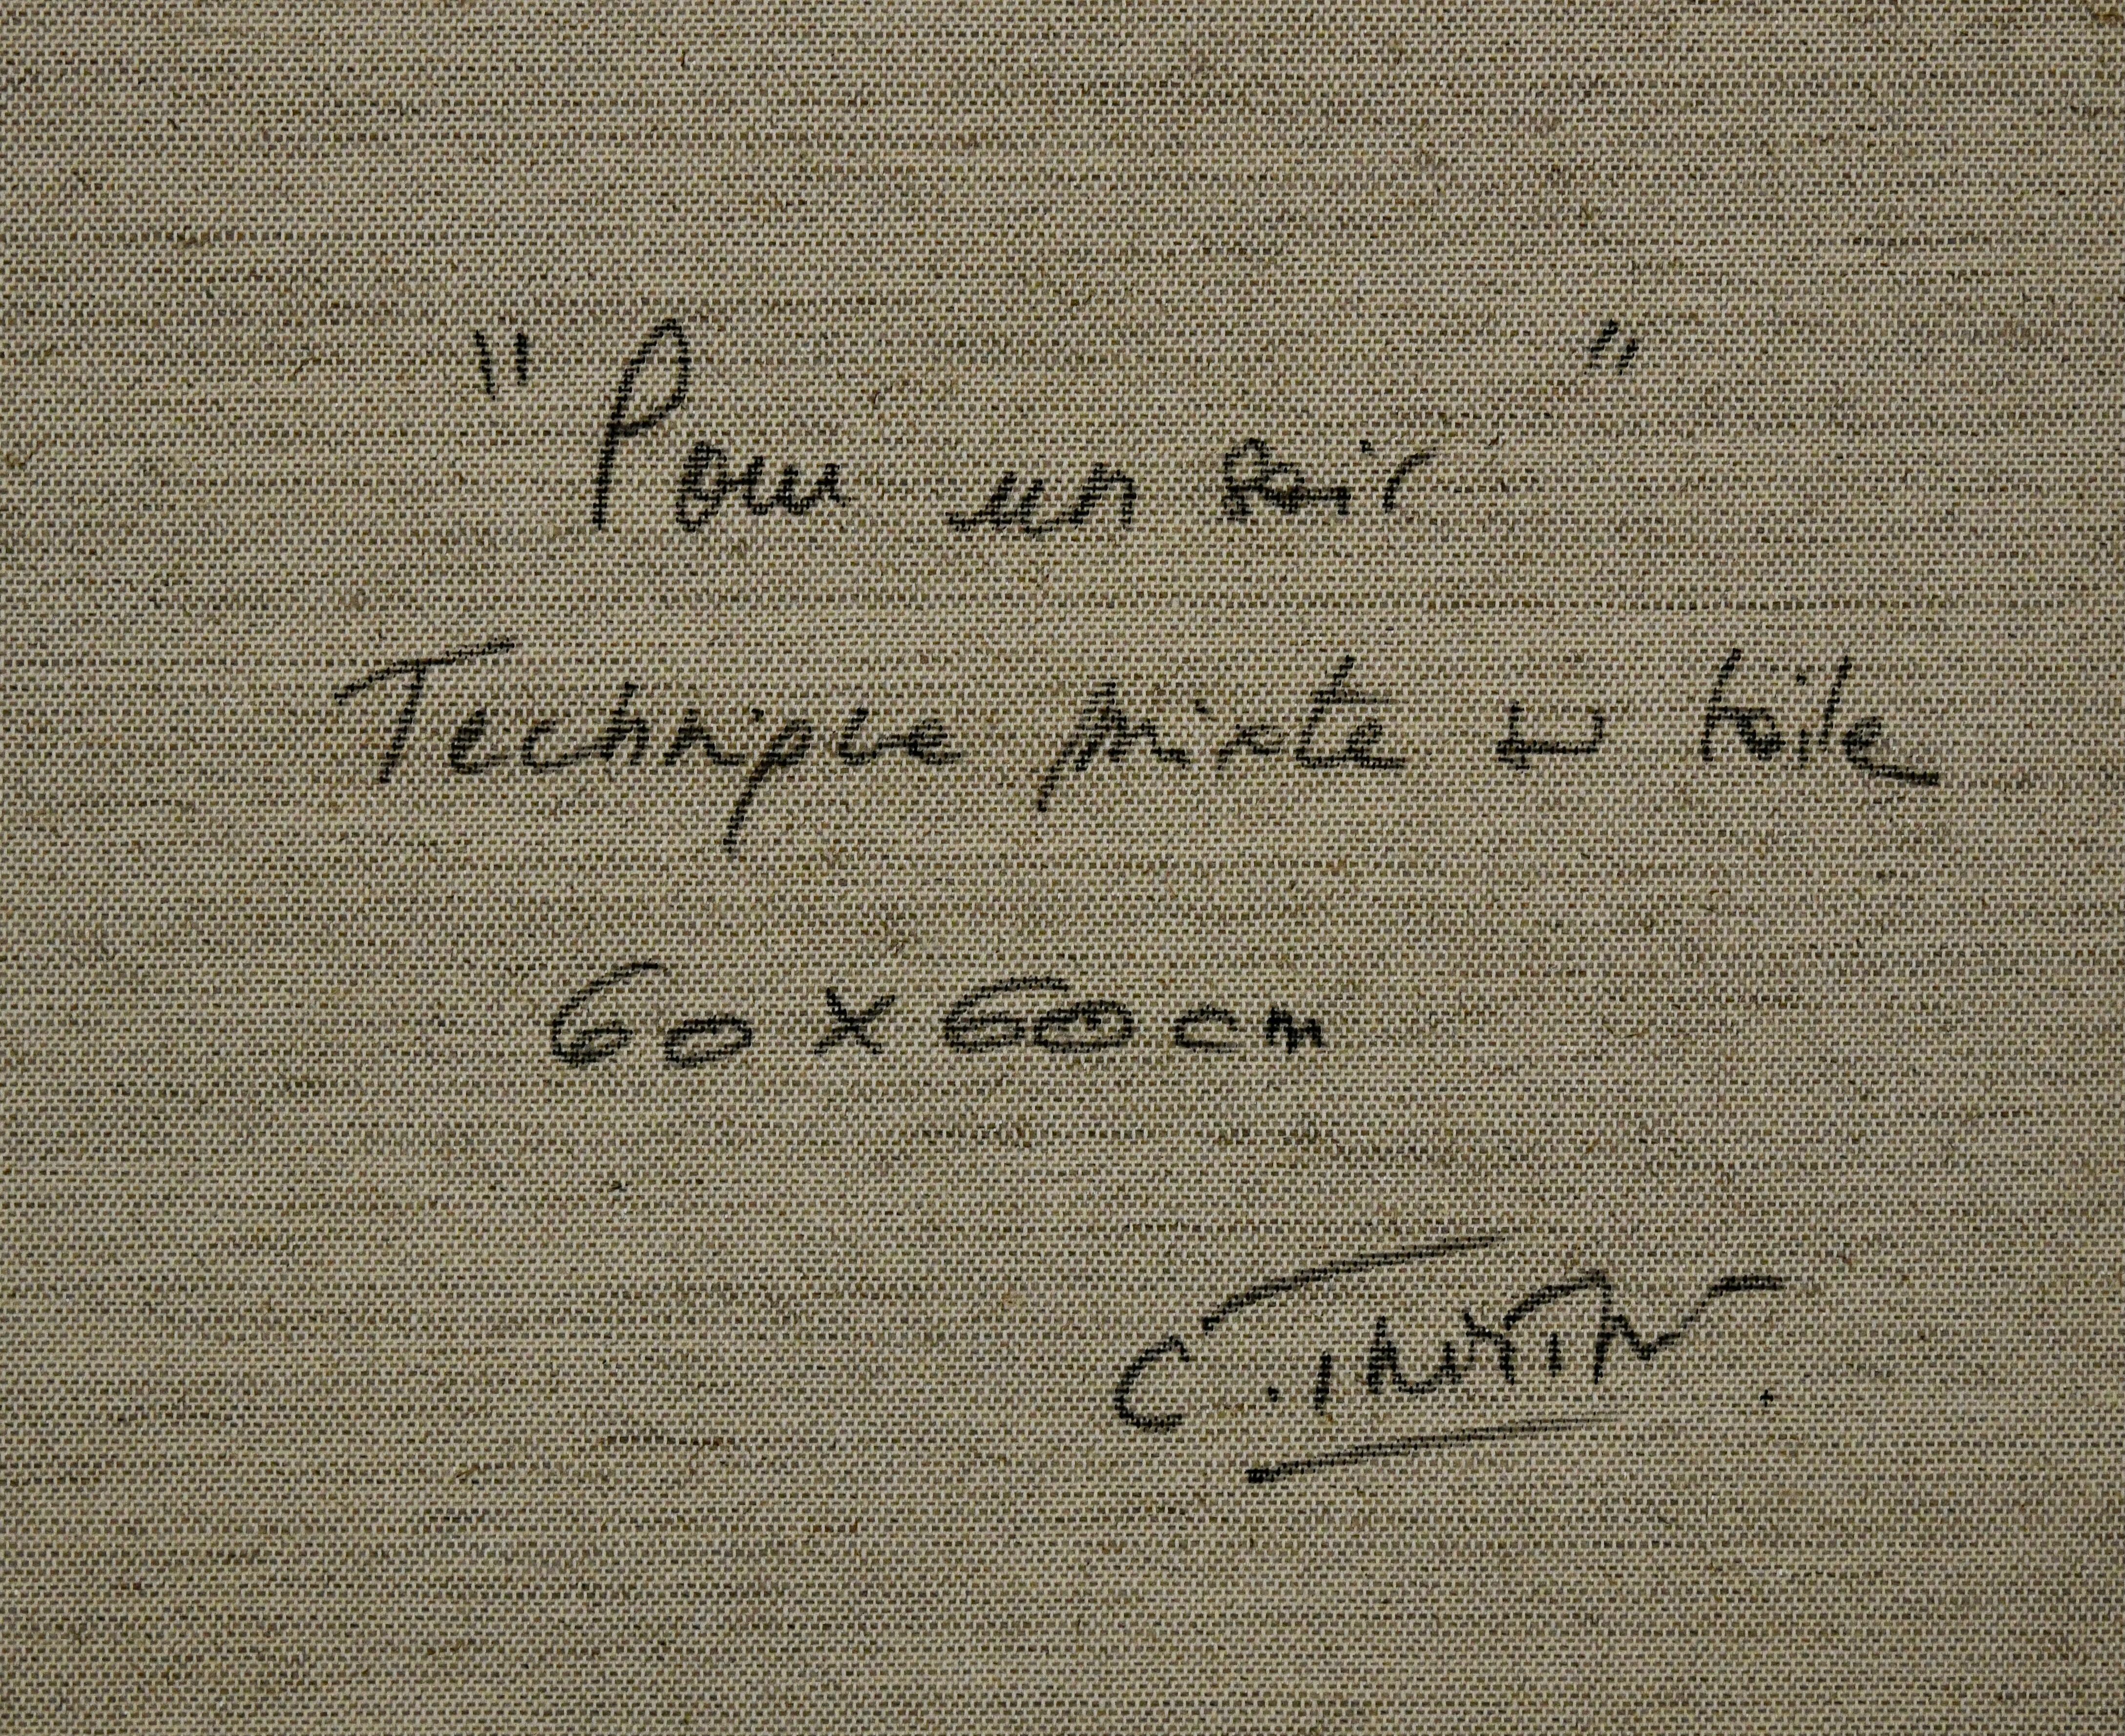 "Pour un soir"
Technique mixte sur toile
60 x 60 cm
C.